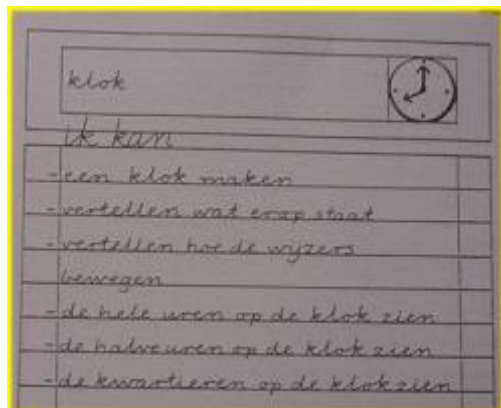 klok
ik kan
- een klok maken
- vertellen wat erop staat
- vertellen hoe de wijzers
bewegen
- de hele uren op de klok zien
- de halve uren op de klok zien
- de kwartieren op de klok zien